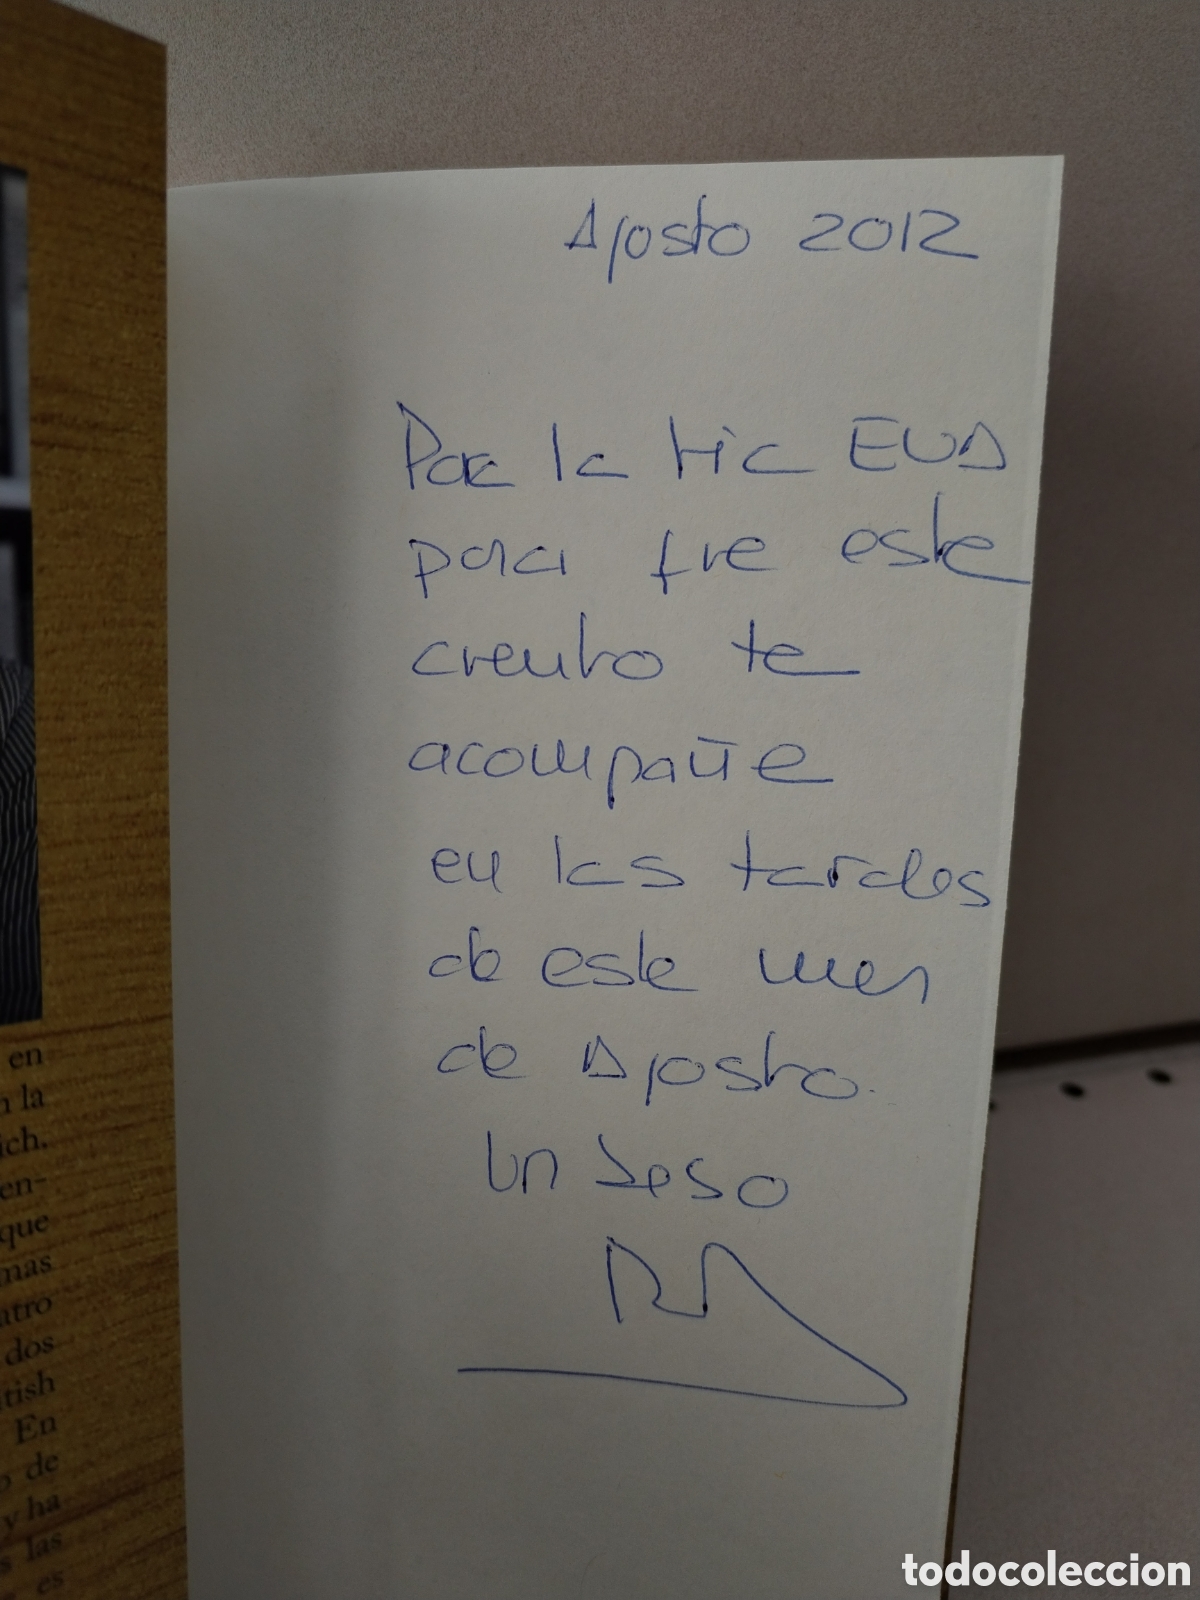 en
la
ich.
en-
que
mas
atro
dos
itish
En
de
y ha
las
es
Agosto 2012
Para la tia EVA
para que este
cuento te
acompañe
en las tardes
de este mes
de Agosto.
Un beso
todocoleccion